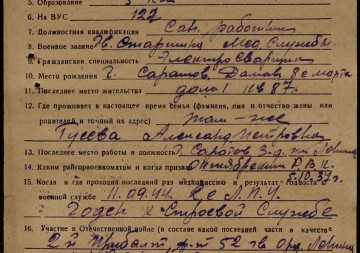 6. № ВУС 122
7. Должностная квалификация Сан. работник
8. Военное звание Гв. Старшина Мед. Службы
9. Гражданская специальность Электросварщик
10. Место рождения г. Саратов,
11. Последнее место жительства
12. Где проживает в настоящее время семья (фамилия, имя и отчество жены или
родителей и точный их адрес) там-же
Гусева Александ Петровна
13. Последнее место работы и должность г. Саратов з-д
14. Каким райгорвоенкоматом и когда призван Октябрьский Р.В.К.
5.10.37 г.
15. Когда и где проходил последний раз медкомиссию и результат годности к
военной службе 11.09.44
Годен к Строевой Службе
16. Участие в Отечественной войне (в составе какой последней части и в качестве
2й Прибалт. ф-т 52 гв. Орд. Ленина